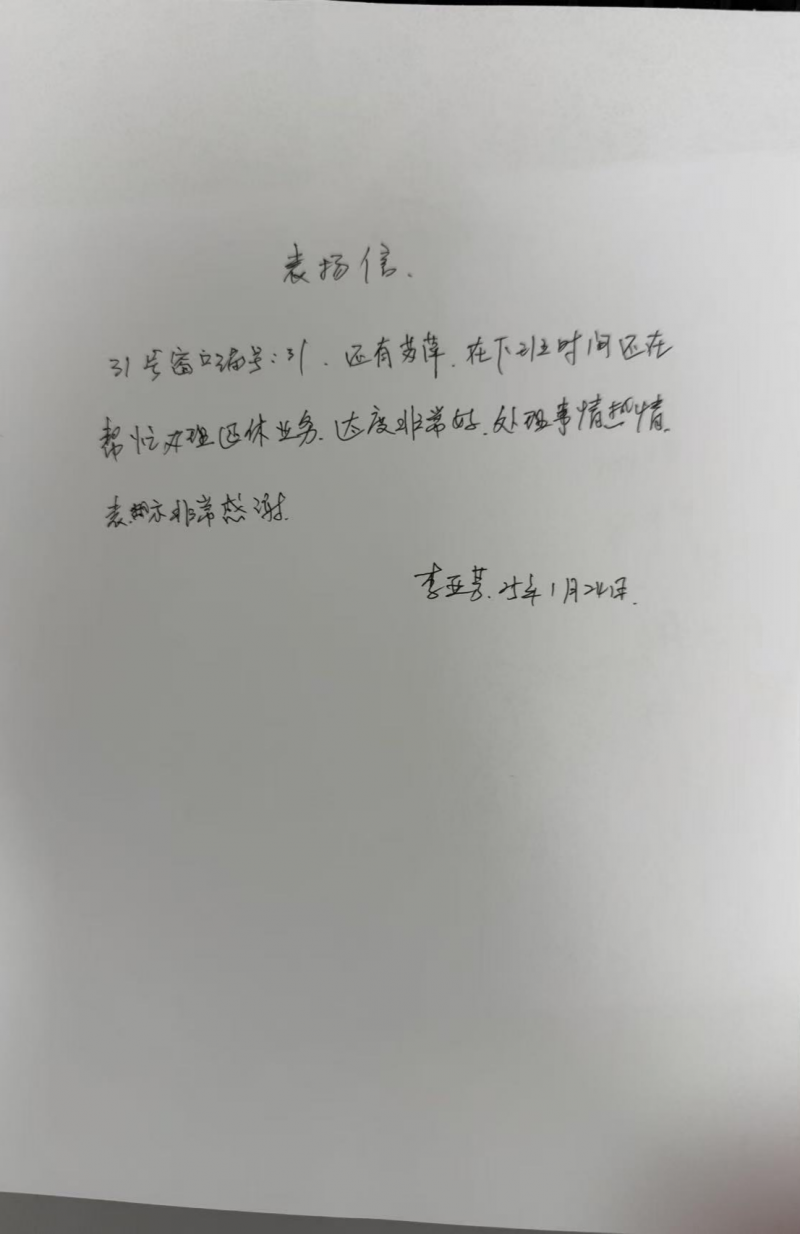 表扬信.
31号窗口编号:31.还有苏萍.在下班时间还在
帮忙办理退休业务.态度非常好.处理事情热情.
表示非常感谢.
李亚芳.25年1月24日.